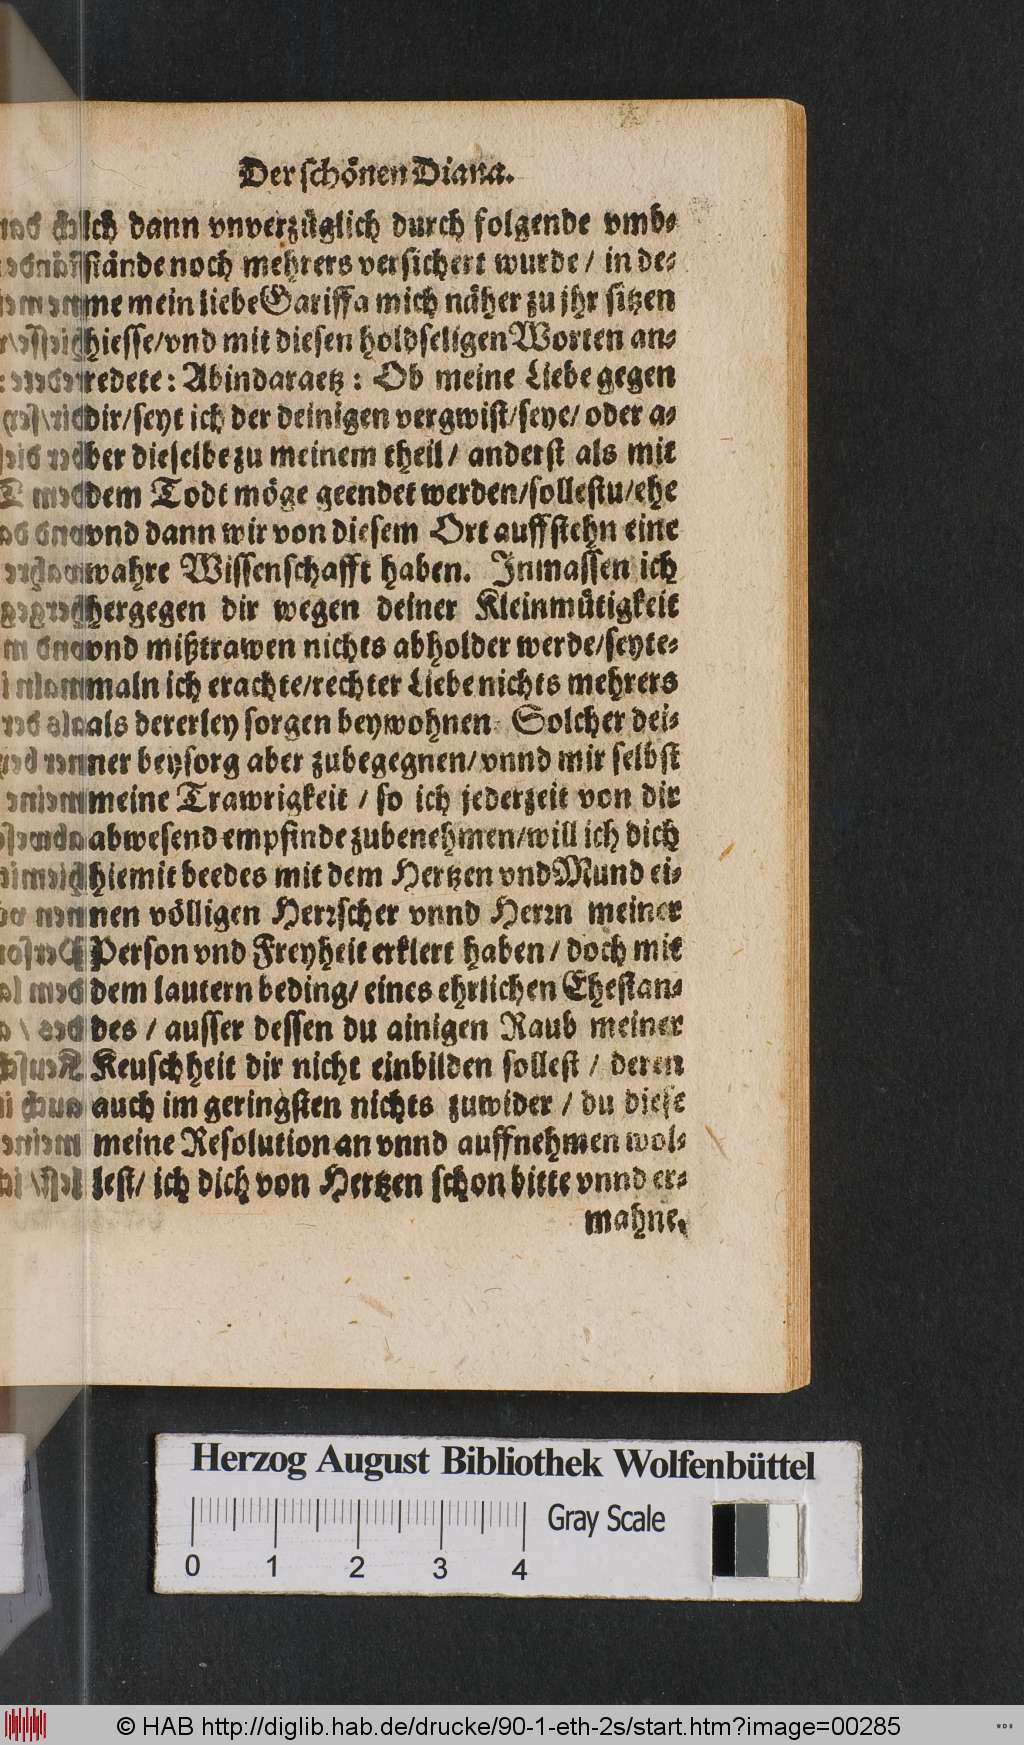 Der schönen Diana.
Ich dann vnverzüglich durch folgende vmb-
stände noch mehrers versichert wurde / in de-
me mein liebe Sariffa mich näher zu jhr sitzen
hiesse/vnd mit diesen holdseligen Worten an-
redete: Abindaraetz: Ob meine Liebe gegen
dir/seyt ich der deinigen vergwist/seye/ oder a-
ber dieselbe zu meinem theil/ anderst als mit
dem Todt möge geendet werden/sollestu/ehe
vnd dann wir von diesem Ort auffstehn eine
wahre Wissenschafft haben. Inmassen ich
hergegen dir wegen deiner Kleinmütigkeit
vnd mißtrawen nichts abholder werde/seyte-
maln ich erachte/rechter Liebe nichts mehrers
als dererley sorgen beywohnen Solcher dei-
ner beysorg aber zubegegnen/ vnnd mir selbst
meine Trawrigkeit / so ich jederzeit von dir
abwesend empfinde zubenehmen/will ich dich
hiemit beedes mit dem Hertzen vnd Mund ei-
nen völligen Herrscher vnnd Herrn meiner
Person vnd Freyheit erklert haben / doch mit
dem lautern beding/ eines ehrlichen Ehestan-
des / ausser dessen du ainigen Raub meiner
Keuschheit dir nicht einbilden sollest / deren
auch im geringsten nichts zuwider / du diese
meine Resolution an vnnd auffnehmen wol-
lest/ ich dich von Hertzen schon bitte vnnd er-
mahne,
Herzog August Bibliothek Wolfenbüttel
Gray Scale
0 1 2 3 4
© HAB http://diglib.hab.de/drucke/90-1-eth-2s/start.htm?image=00285